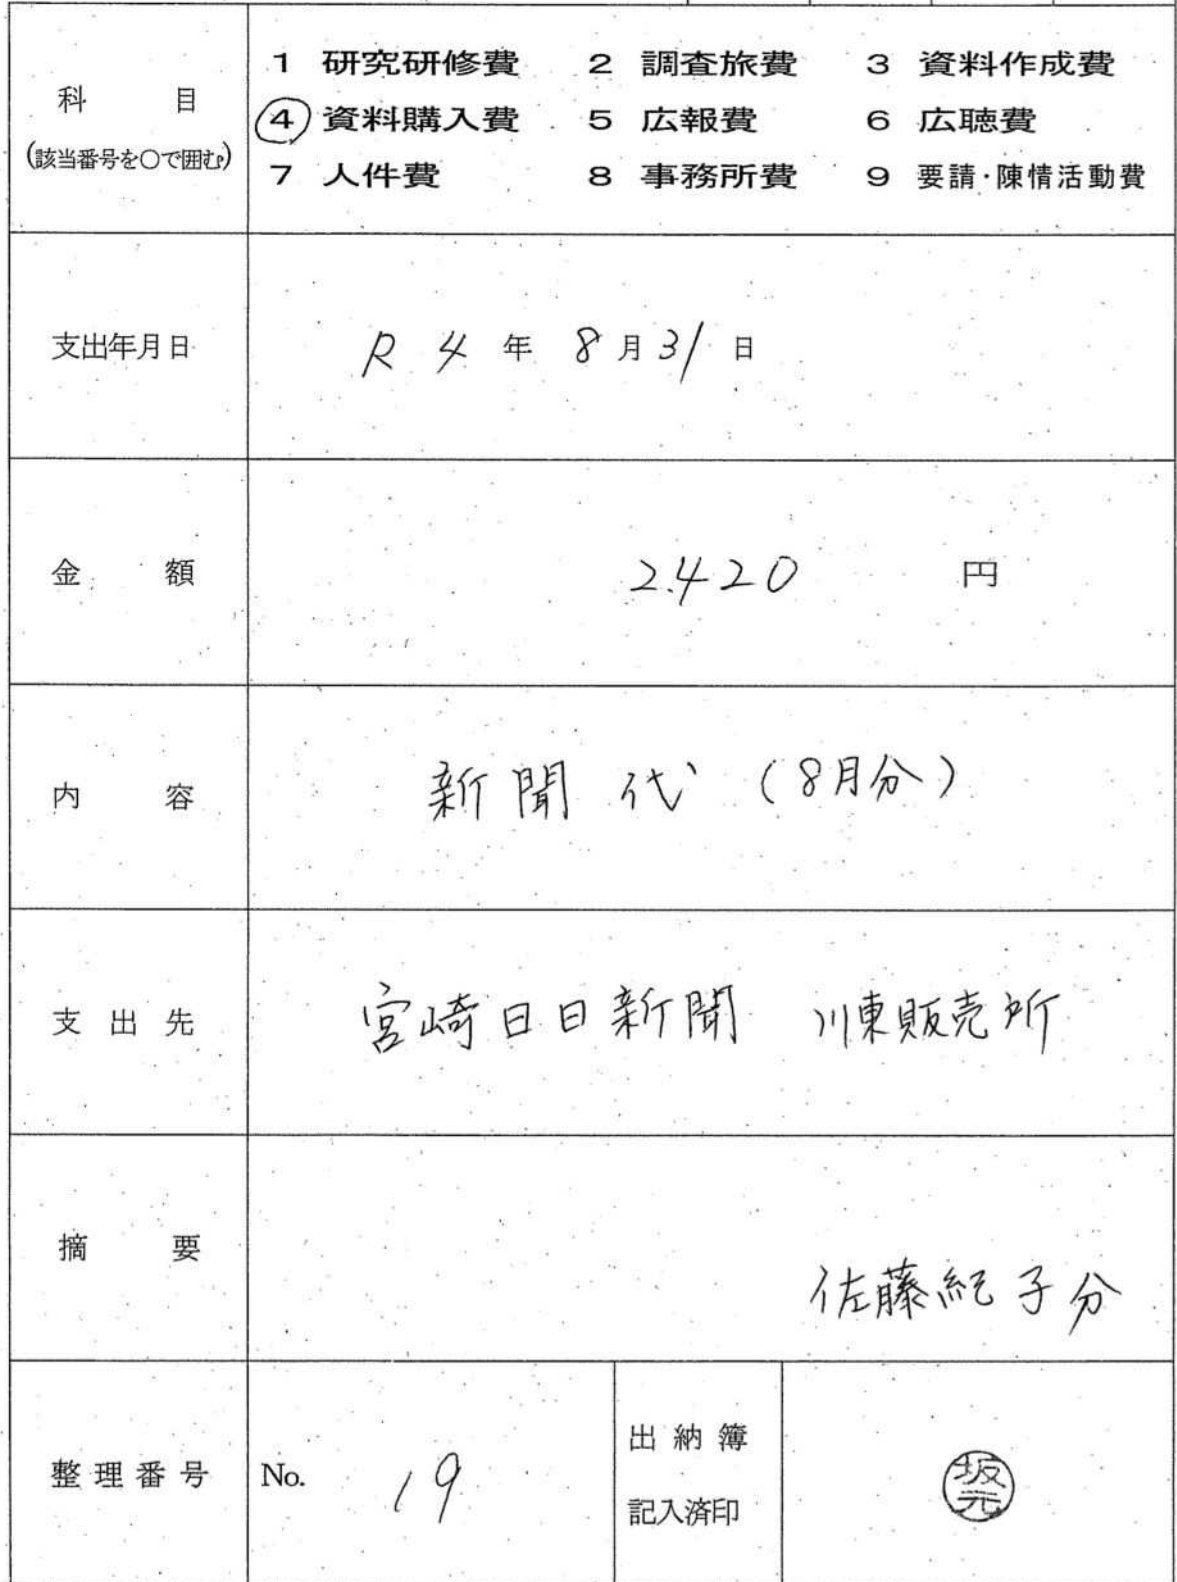 科 目
(該当番号を○で囲む)
1 研究研修費 2 調査旅費 3 資料作成費
4 資料購入費 5 広報費 6 広聴費
7 人件費 8 事務所費 9 要請・陳情活動費
支出年月日 R 4 年 8 月 31 日
金 額 2.420 円
内 容 新聞代 (8月分)
支出先 宮崎日日新聞 川東販売所
摘 要 佐藤紀子分
整理番号 No. 19
出納簿
記入済印
坂元